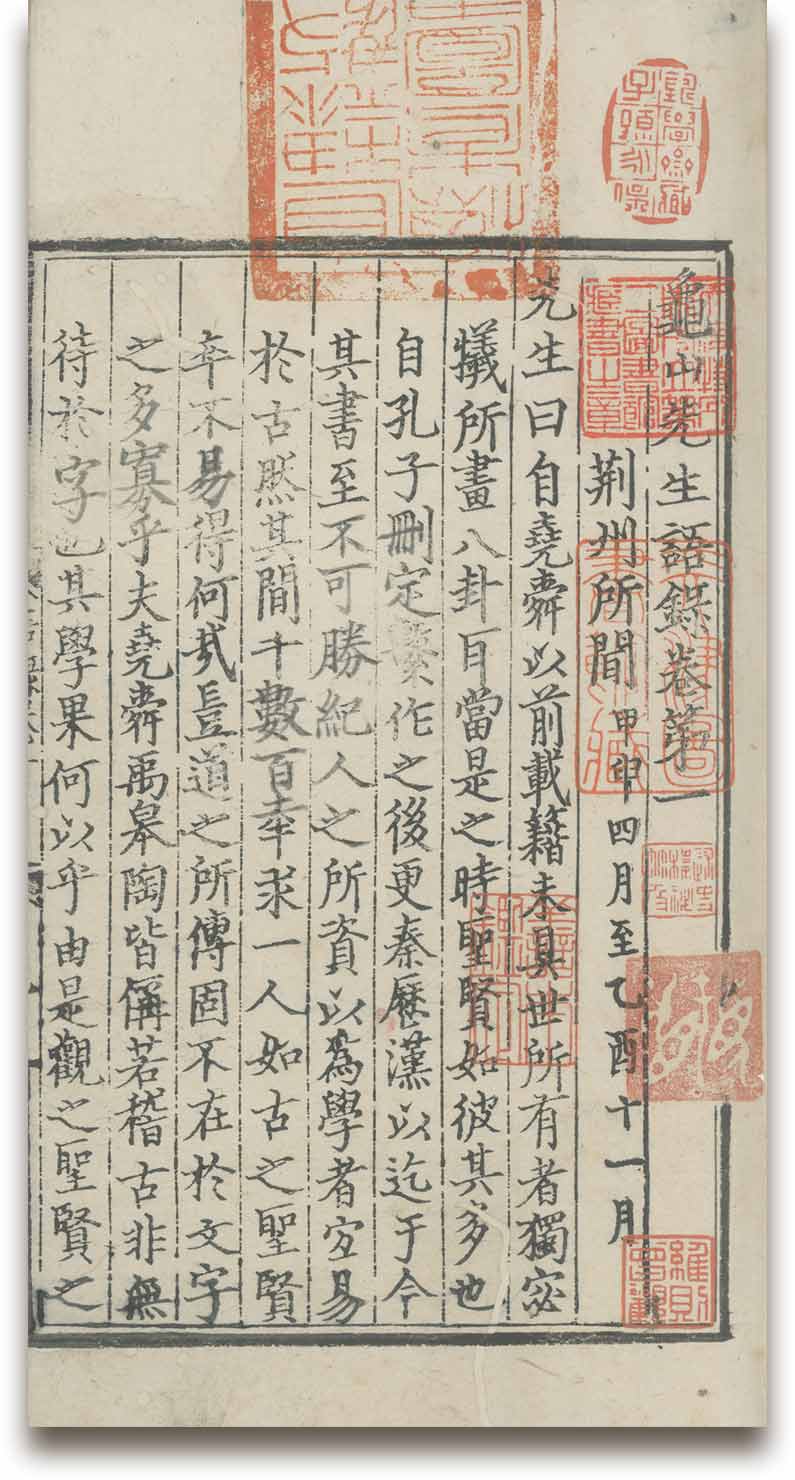 龜山先生語錄卷第一
荆州所聞 甲申四月至乙酉十一月
先生曰自堯舜以前載籍未具世所有者獨宓
犧所畫八卦耳當是之時聖賢如彼其多也
自孔子刪定繫作之後更秦歷漢以迄于今
其書至不可勝紀人之所資以為學者宜易
於古然其間千數百年求一人如古之聖賢
卒不易得何㢤豈道之所傳固不在於文字
之多寡乎夫堯舜禹皋陶皆偁若稽古非無
待於字也其學果何以乎由是觀之聖賢之